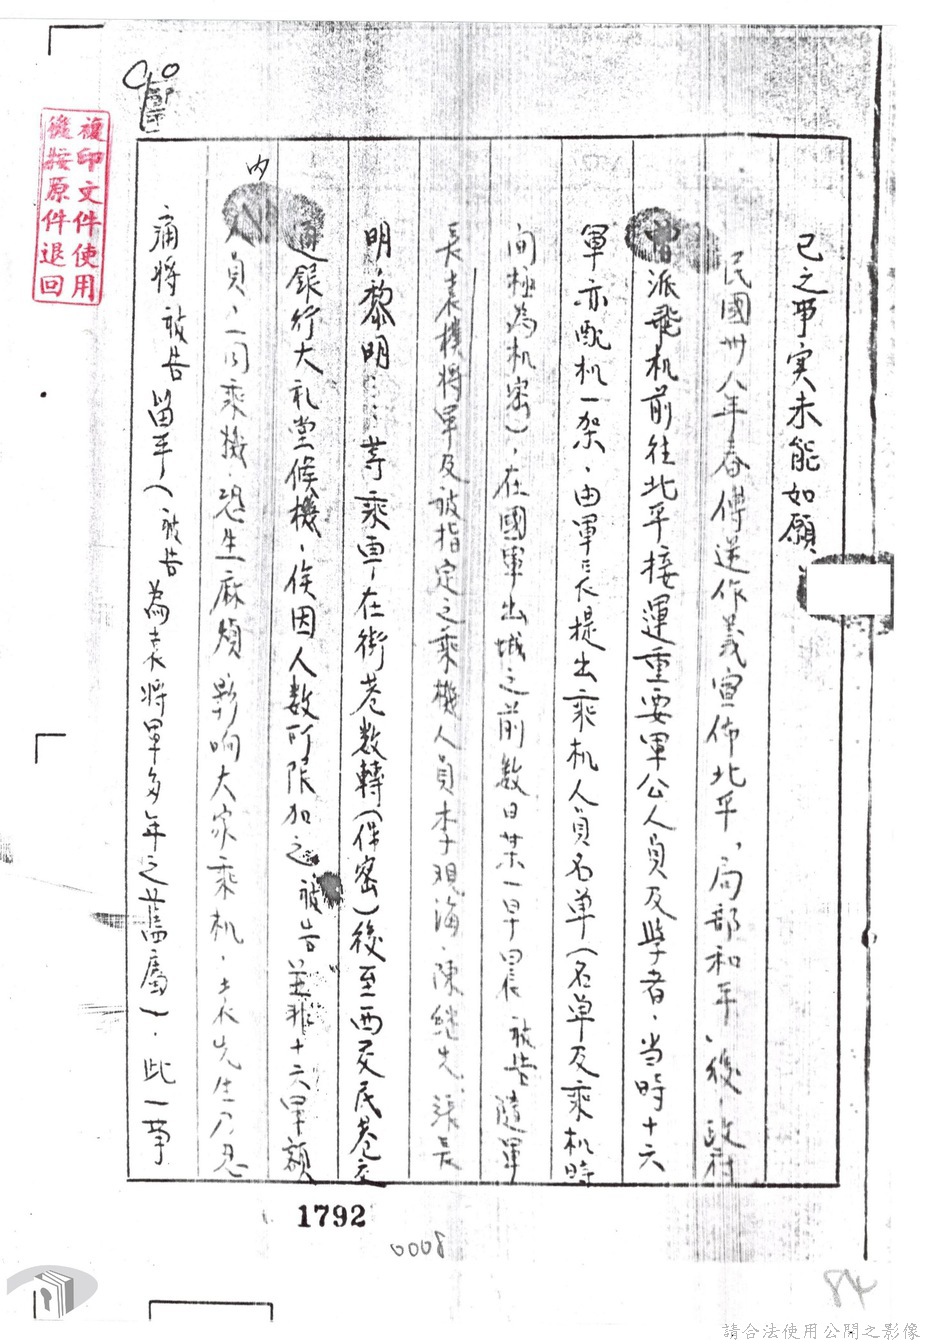 已之事实未能如願
民國卅八年春傅逆作義宣佈北平，局部和平，後，政府
曾派飛机前往北平接運重要軍公人員及學者，当時十六
軍亦配机一架，由軍長提出乘机人員名单（名单及乘机時
间極為机密），在國軍出城之前數日某一早晨被告隨軍
長袁樸將軍及被指定之乘機人員李观海、陳繼先、張長
明、黎明……等乘車在街巷数轉（保密）後至西交民巷交
通銀行大礼堂候機，俟因人数所限加之被告並非十六軍額
内人員，一同乘機恐生麻煩影响大家乘机，袁先生乃忍
痛將被告留平（被告為袁將軍多年之舊屬），此一事
1792
0008
84
複印文件使用
後按原件退回
請合法使用公開之影像